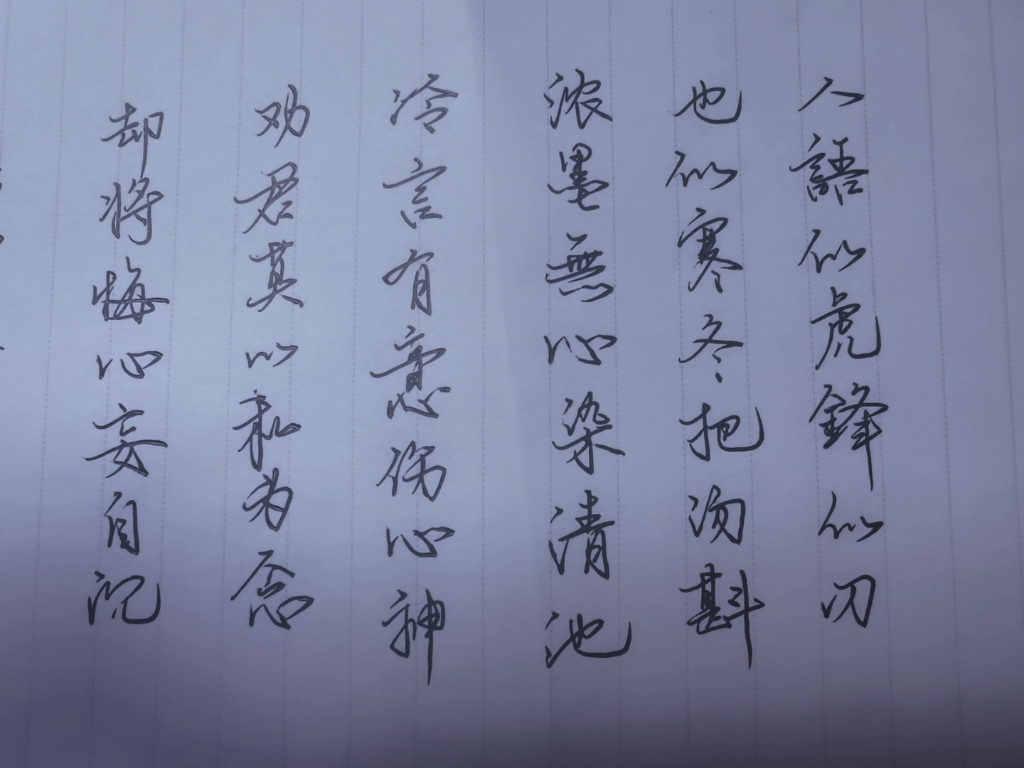 人語似虎鋒似刃
也似寒冬把汤斟
浓墨無心染清池
冷言有意伤心神
劝君莫以私为念
却将悔心妄自沉